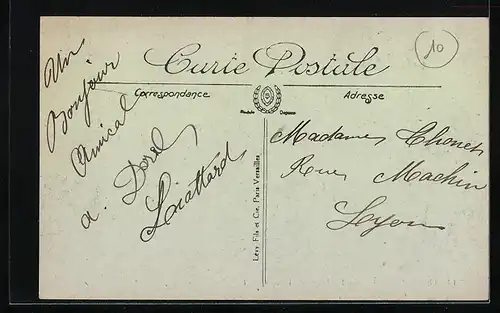 10
Carte Postale
Correspondance
Adresse
Modèle Déposé
Un
Bonjour
Amical
a. Dorel
Liattard
Lévy Fils et Cie, Paris-Versailles
Madame
Rue Machin
Lyon